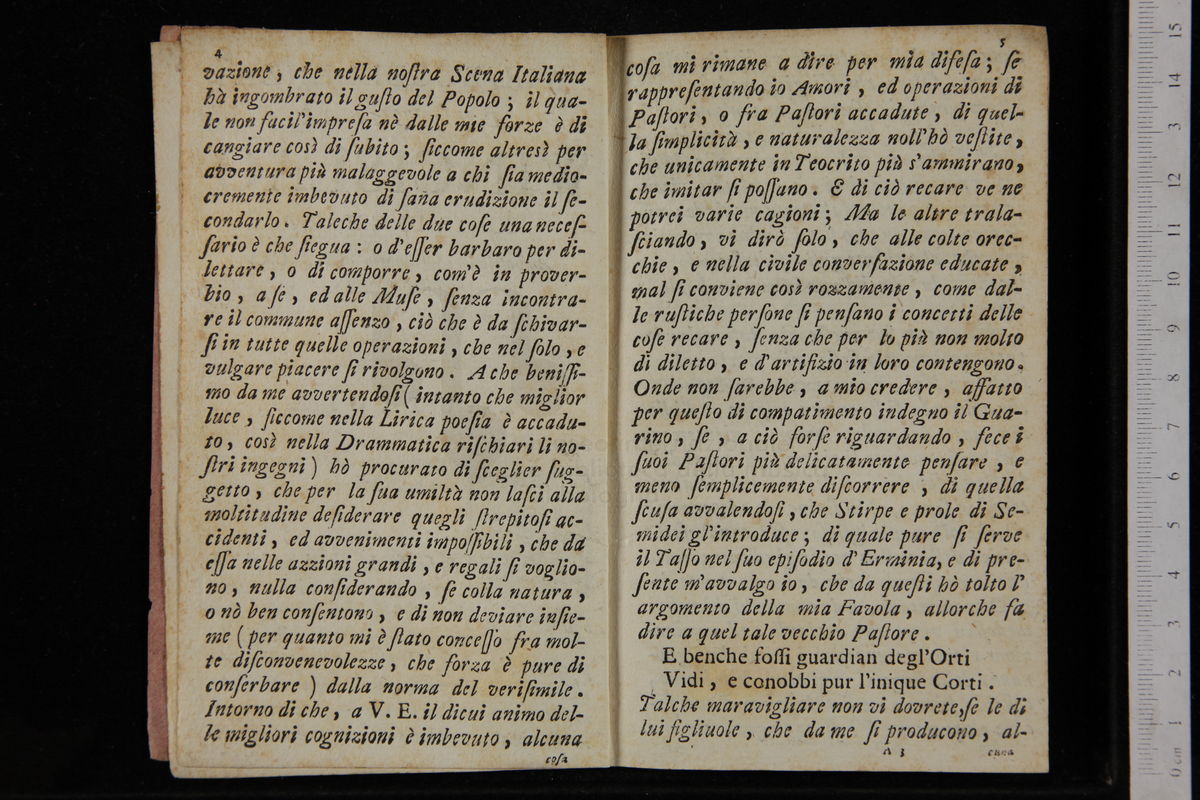 4
vazione, che nella noſtra Scena Italiana
hà ingombrato il guſto del Popolo; il qua-
le non facil'impreſa nè dalle mie forze è di
cangiare così di ſubito; ſiccome altresì per
avventura più malaggevole a chi ſia medio-
cremente imbevuto di ſana erudizione il ſe-
condarlo. Taleche delle due coſe una neceſ-
ſario è che ſiegua: o d'eſſer barbaro per di-
lettare, o di comporre, com'è in prover-
bio, a ſe, ed alle Muſe, ſenza incontra-
re il commune aſſenzo, ciò che è da ſchivar-
ſi in tutte quelle operazioni, che nel ſolo, e
vulgare piacere ſi rivolgono. A che beniſſi-
mo da me avvertendoſi (intanto che miglior
luce, ſiccome nella Lirica poeſia è accadu-
to, così nella Drammatica riſchiari li no-
ſtri ingegni) hò procurato di ſceglier ſug-
getto, che per la ſua umiltà non laſci alla
moltitudine deſiderare quegli ſtrepitoſi ac-
cidenti, ed avvenimenti impoſſibili, che da
eſſa nelle azzioni grandi, e regali ſi voglio-
no, nulla conſiderando, ſe colla natura,
o nò ben conſentono, e di non deviare inſie-
me (per quanto mi è ſtato conceſſo fra mol-
te diſconvenevolezze, che forza è pure di
conſerbare) dalla norma del veriſimile.
Intorno di che, a V. E. il dicui animo del-
le migliori cognizioni è imbevuto, alcuna
coſa
5
coſa mi rimane a dire per mia difeſa; ſe
rappreſentando io Amori, ed operazioni di
Paſtori, o fra Paſtori accadute, di quel-
la ſimplicità, e naturalezza noll'hò veſtite,
che unicamente in Teocrito più s'ammirano,
che imitar ſi poſſano. E di ciò recare ve ne
potrei varie cagioni; Ma le altre trala-
ſciando, vi dirò ſolo, che alle colte orec-
chie, e nella civile converſazione educate,
mal ſi conviene così rozzamente, come dal-
le ruſtiche perſone ſi penſano i concetti delle
coſe recare, ſenza che per lo più non molto
di diletto, e d'artifizio in loro contengono.
Onde non ſarebbe, a mio credere, affatto
per queſto di compatimento indegno il Gua-
rino, ſe, a ciò forſe riguardando, fece i
ſuoi Paſtori più delicatamente penſare, e
meno ſemplicemente diſcorrere, di quella
ſcuſa avvalendoſi, che Stirpe e prole di Se-
midei gl'introduce; di quale pure ſi ſerve
il Taſſo nel ſuo epiſodio d'Erminia, e di pre-
ſente m'avvalgo io, che da queſti hò tolto l'
argomento della mia Favola, allorche fa
dire a quel tale vecchio Paſtore.
E benche foſſi guardian degl'Orti
Vidi, e conobbi pur l'inique Corti.
Talche maravigliare non vi dovrete, ſe le di
lui figliuole, che da me ſi producono, al-
A 3
cuna
15
14
13
12
11
10
9
8
7
6
5
4
3
2
1
0 cm